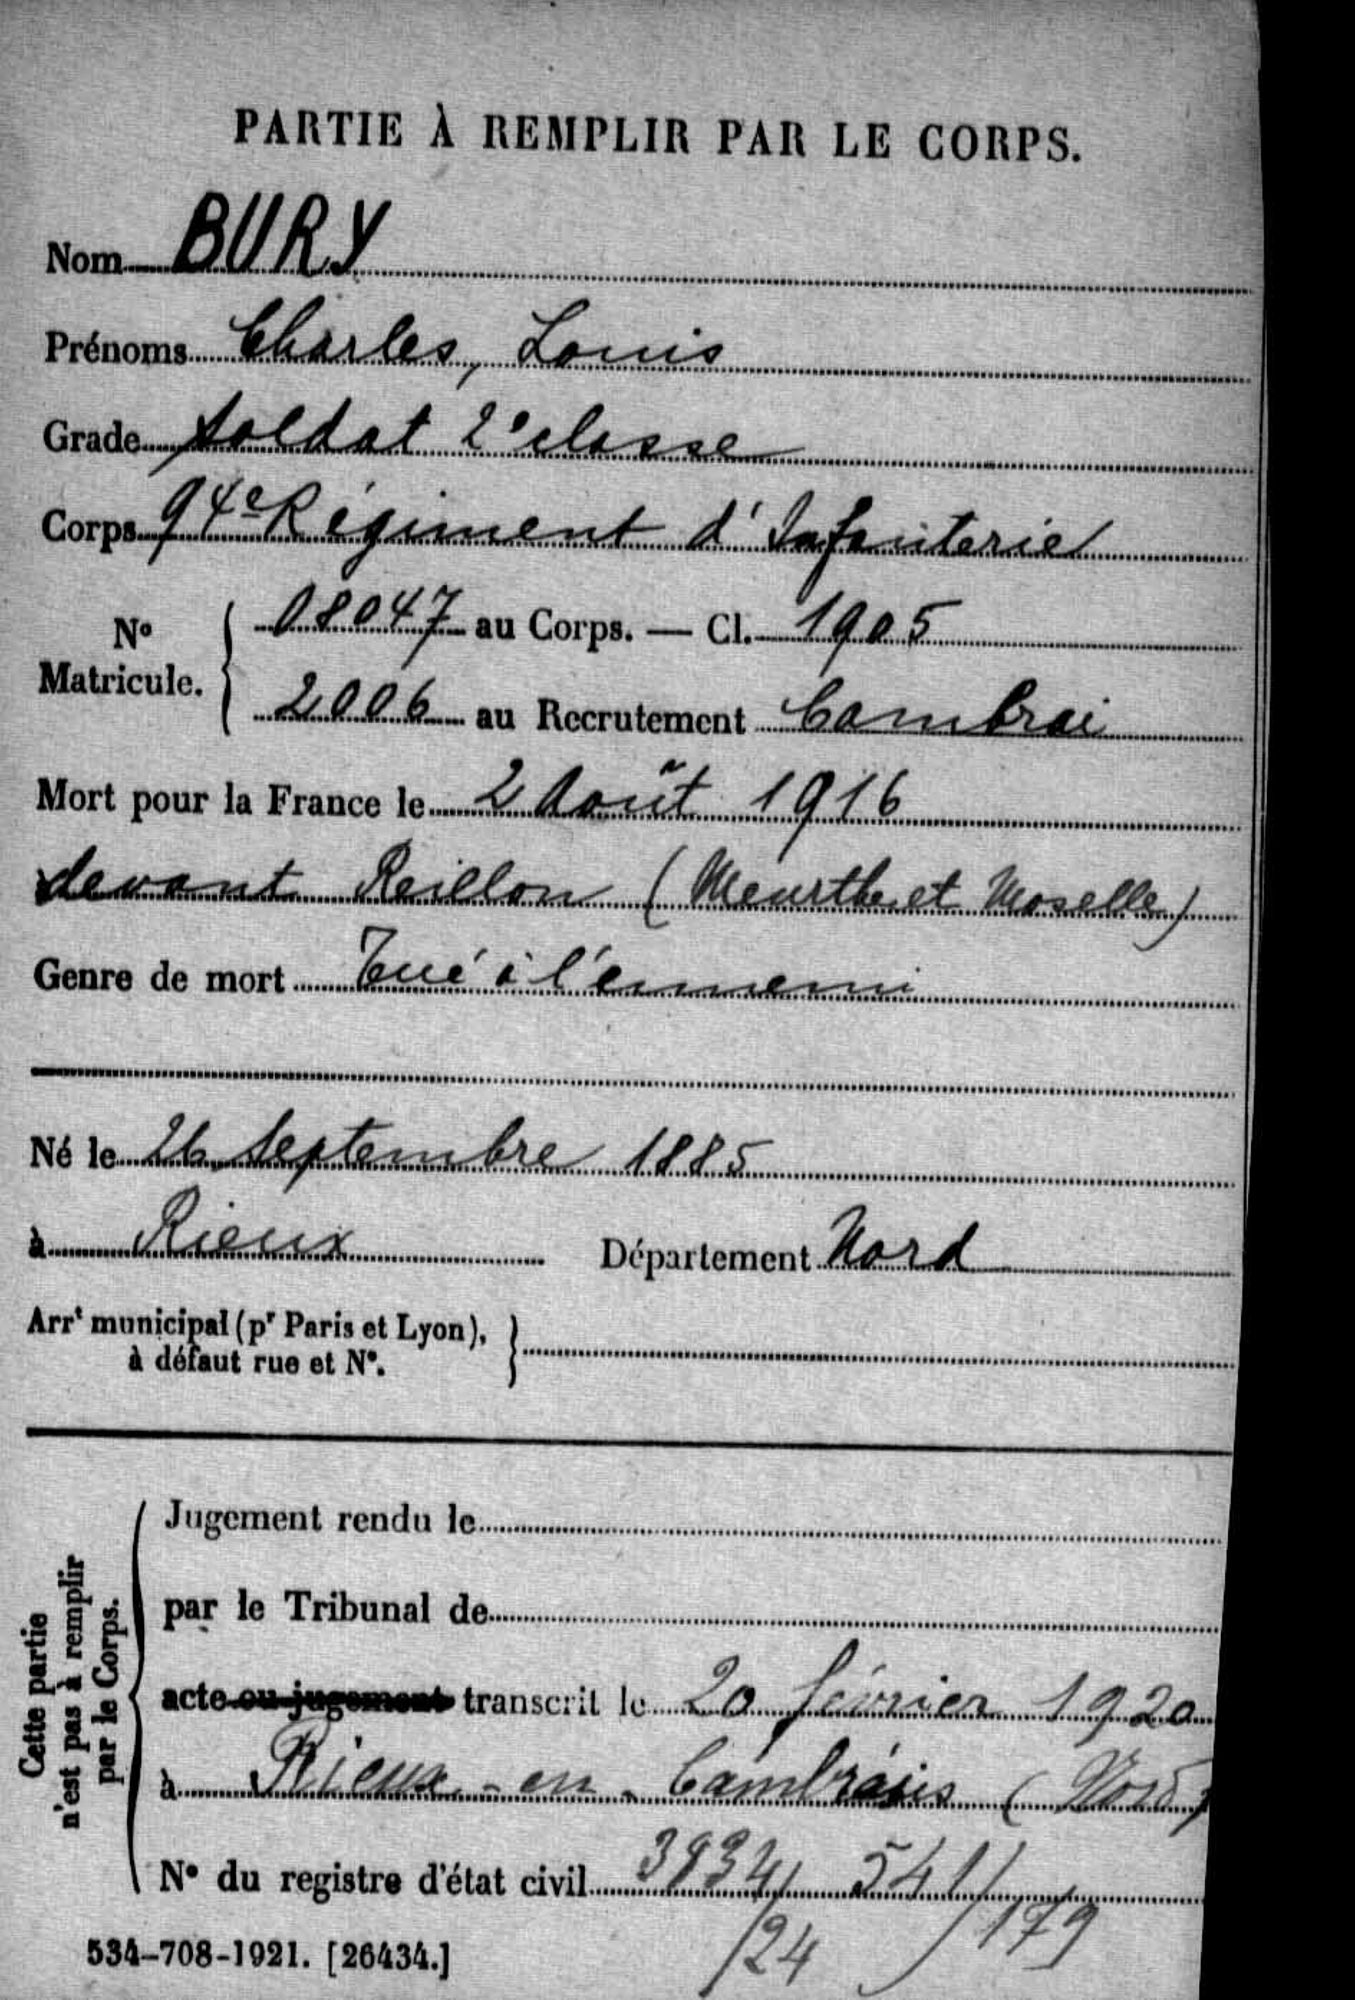 PARTIE À REMPLIR PAR LE CORPS.
Nom BURY
Prénoms Charles, Louis
Grade Soldat 2e classe
Corps 94e Régiment d'Infanterie
No Matricule. 08047 au Corps. — Cl. 1905
2006 au Recrutement Cambrai
Mort pour la France le 2 Août 1916
devant Reillon (Meurthe et Moselle)
Genre de mort Tué à l'ennemi
Né le 26 Septembre 1885
à Rieux Département Nord
Arrt municipal (pr Paris et Lyon),
à défaut rue et No.
Cette partie
n'est pas à remplir
par le Corps.
Jugement rendu le
par le Tribunal de
acte ou jugement transcrit le 20 février 1920
à Rieux-en-Cambrésis (Nord)
No du registre d'état civil 3834/ 541/
/24 /179
534-708-1921. [26434.]